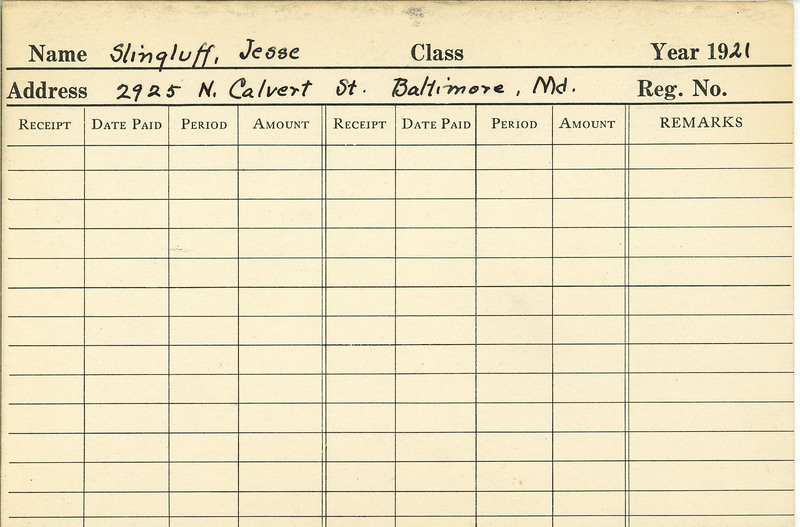 Name Slingluff, Jesse Class Year 1921
Address 2925 N. Calvert St. Baltimore, Md. Reg. No.
RECEIPT DATE PAID PERIOD AMOUNT RECEIPT DATE PAID PERIOD AMOUNT REMARKS